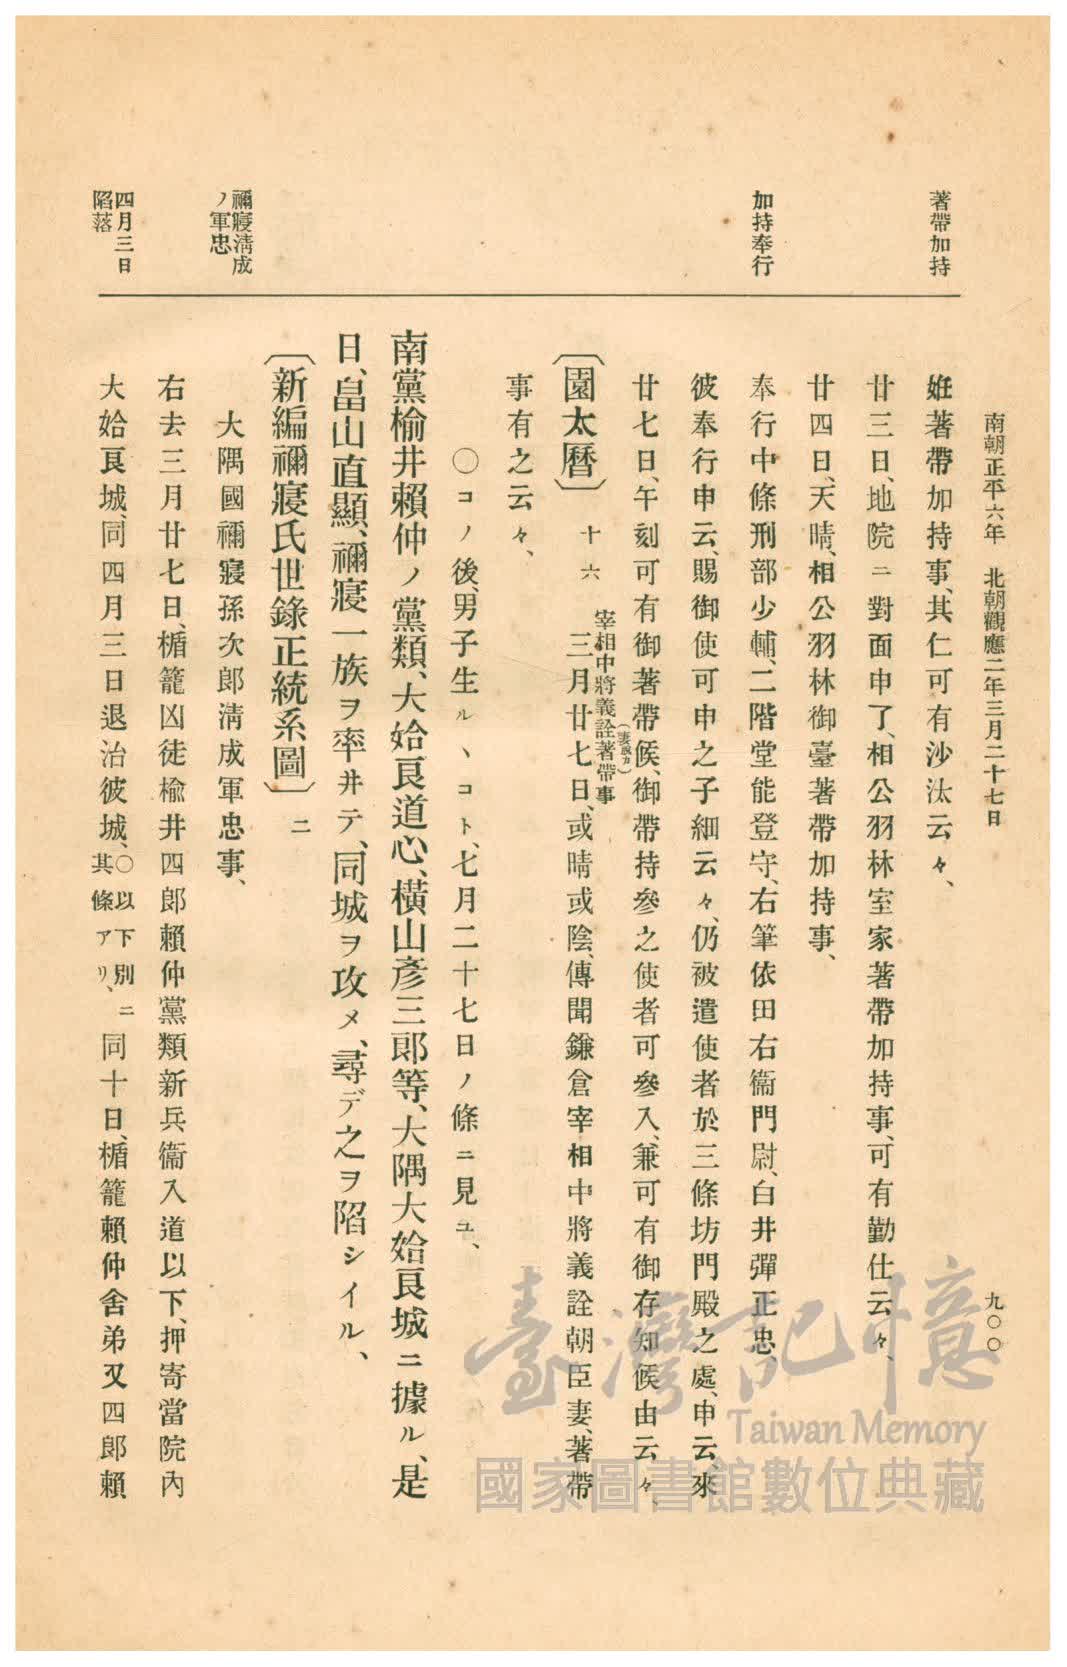 南朝正平六年　北朝觀應二年三月二十七日
九〇〇
著帶加持
加持奉行
禰寢淸成
ノ軍忠
四月三日
陷落
姙著帶加持事、其仁可有沙汰云々、
廿三日、地院ニ對面申了、相公羽林室家著帶加持事、可有勤仕云々、
廿四日、天晴、相公羽林御臺著帶加持事、
奉行中條刑部少輔、二階堂能登守、右筆依田右衞門尉、白井彈正忠、
彼奉行申云、賜御使可申之子細云々、仍被遣使者於三條坊門殿之處、申云、來
廿七日、午刻可有御著帶候、御帶持參之使者可參入、兼可有御存知候由云々、
〔園太曆〕　十六
宰相中將義詮著帶事
(妻脫カ)
三月廿七日、或晴或陰、傳聞鎌倉宰相中將義詮朝臣妻、著帶
事有之云々、
〇コノ後、男子生ル丶コト、七月二十七日ノ條ニ見ユ、
南黨楡井賴仲ノ黨類、大姶良道心、橫山彥三郞等、大隅大姶良城ニ據ル、是
日、畠山直顯、禰寢一族ヲ率井テ、同城ヲ攻メ、尋デ之ヲ陷シイル、
〔新編禰寢氏世錄正統系圖〕　二
大隅國禰寢孫次郞淸成軍忠事、
右去三月廿七日、楯籠凶徒楡井四郞賴仲黨類新兵衞入道以下、押寄當院內
大姶良城、同四月三日退治彼城、〇以下別ニ其條アリ、同十日、楯籠賴仲舍弟又四郞賴
臺灣記憶
Taiwan Memory
國家圖書館數位典藏